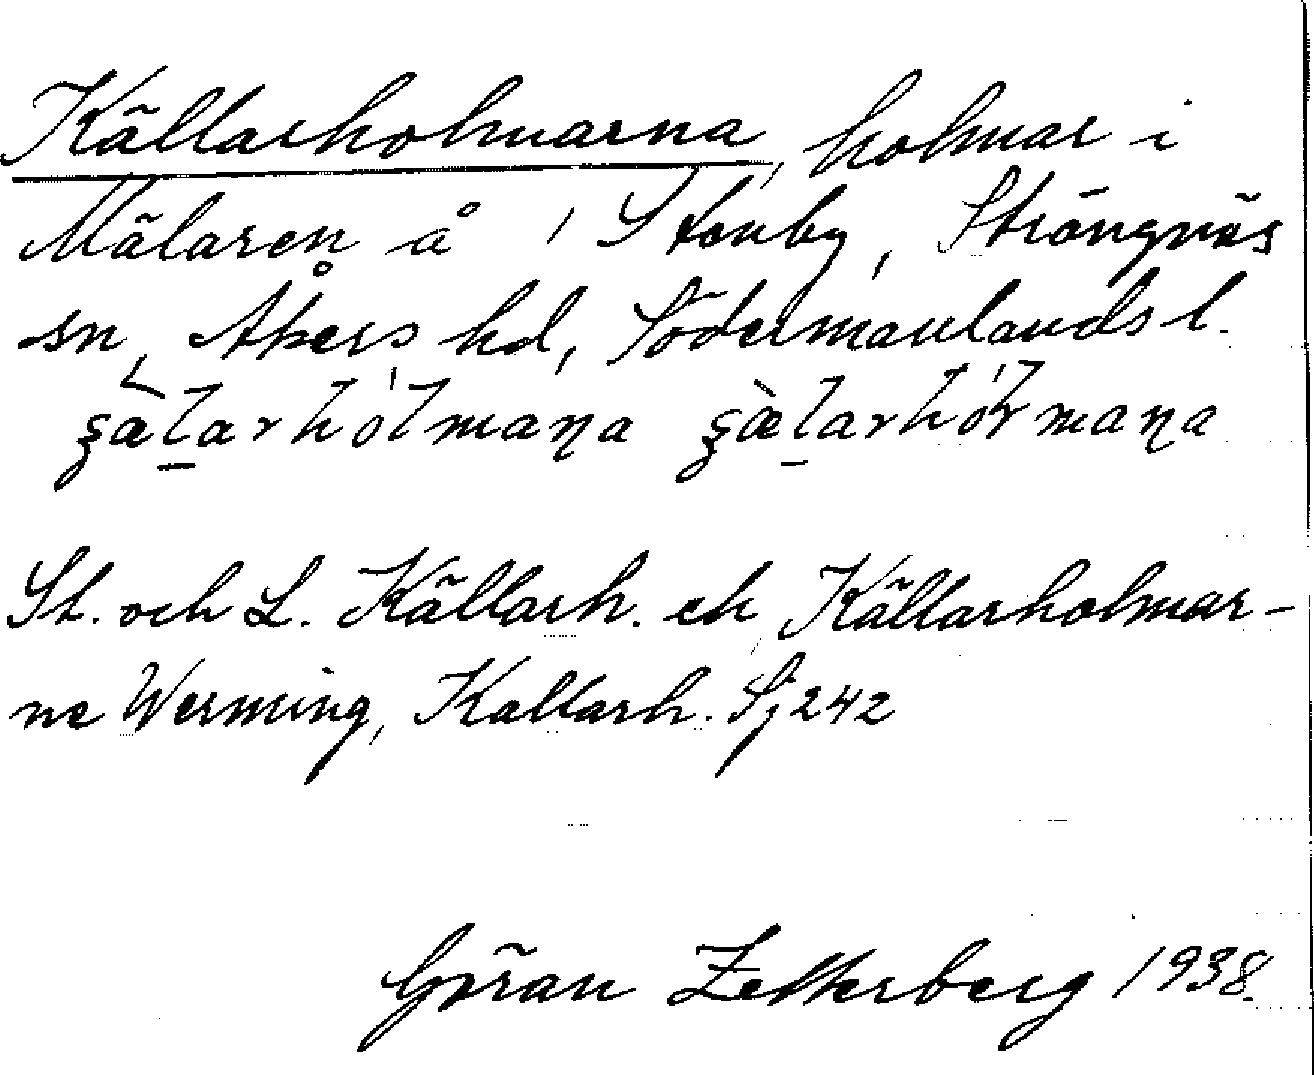 Källarholmarna, holmar i
Mälaren å 1 Stenby, Strängnäs
sn, Åkers hd, Södermanlands l.
St. och L. Källarh. ek Källarholmar-
ne Werming, Kallarh. Sj 242
Göran Zetterberg 1938.